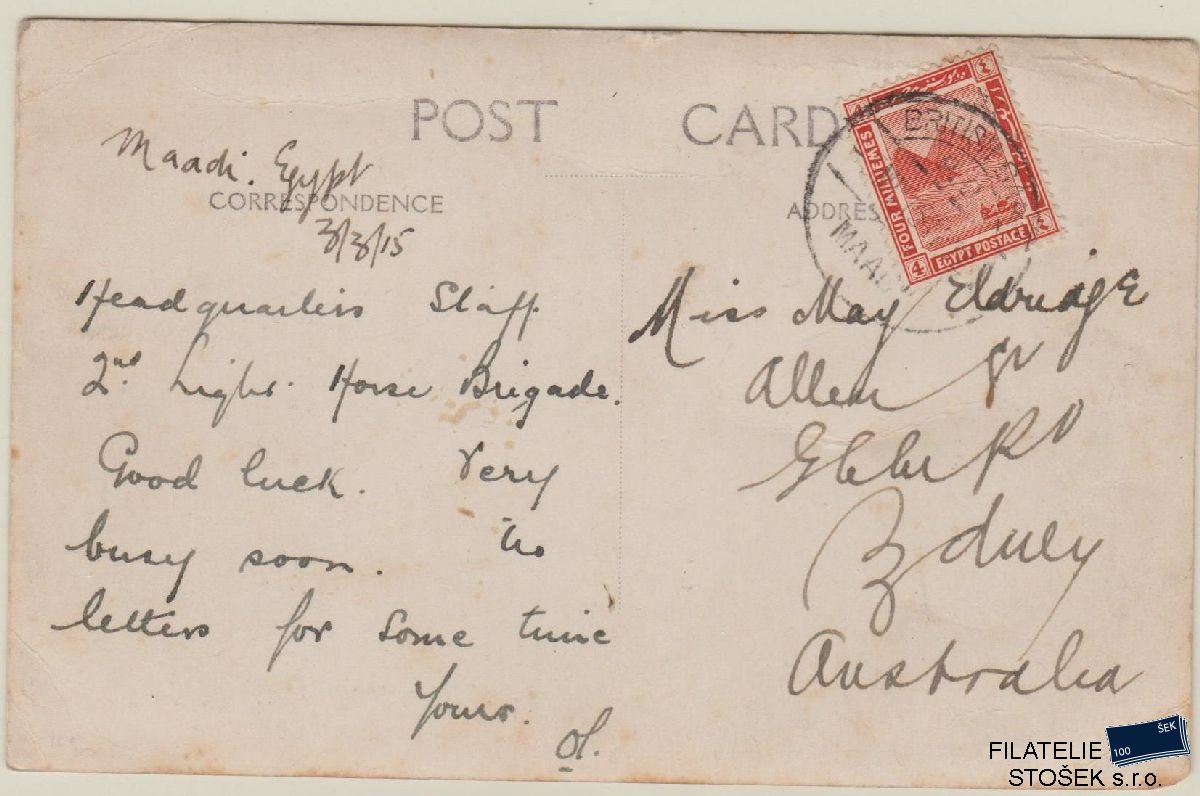 POST CARD
Maadi. Egypt
CORRESPONDENCE
3/3/15
Headquarters Staff
2nd. Light. Horse Brigade.
Good luck. Very
busy soon. No
letters for some time
Yours.
ADDRES
Miss May Eldridge
Allen St
Glebe Pt
Sydney
Australia
BRITISH
MAADI
FOUR MILLIEMES
EGYPT POSTAGE
4
٤
٤
FILATELIE
STOŠEK s.r.o.
100 ŠEK